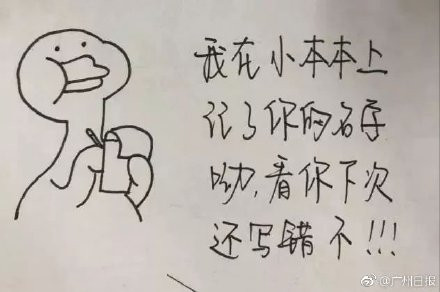 我在小本本上
记了你的名字
呦,看你下次
还写错不!!!
@广州日报